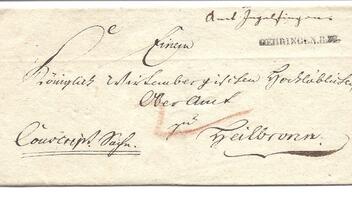 Amt Ingelfingen.
OEHRINGEN.R.
Einem
Königlich Würtembergischen Hochlöblichen
Ober Amt
zu
Heilbronn.
Conscript. Sache.